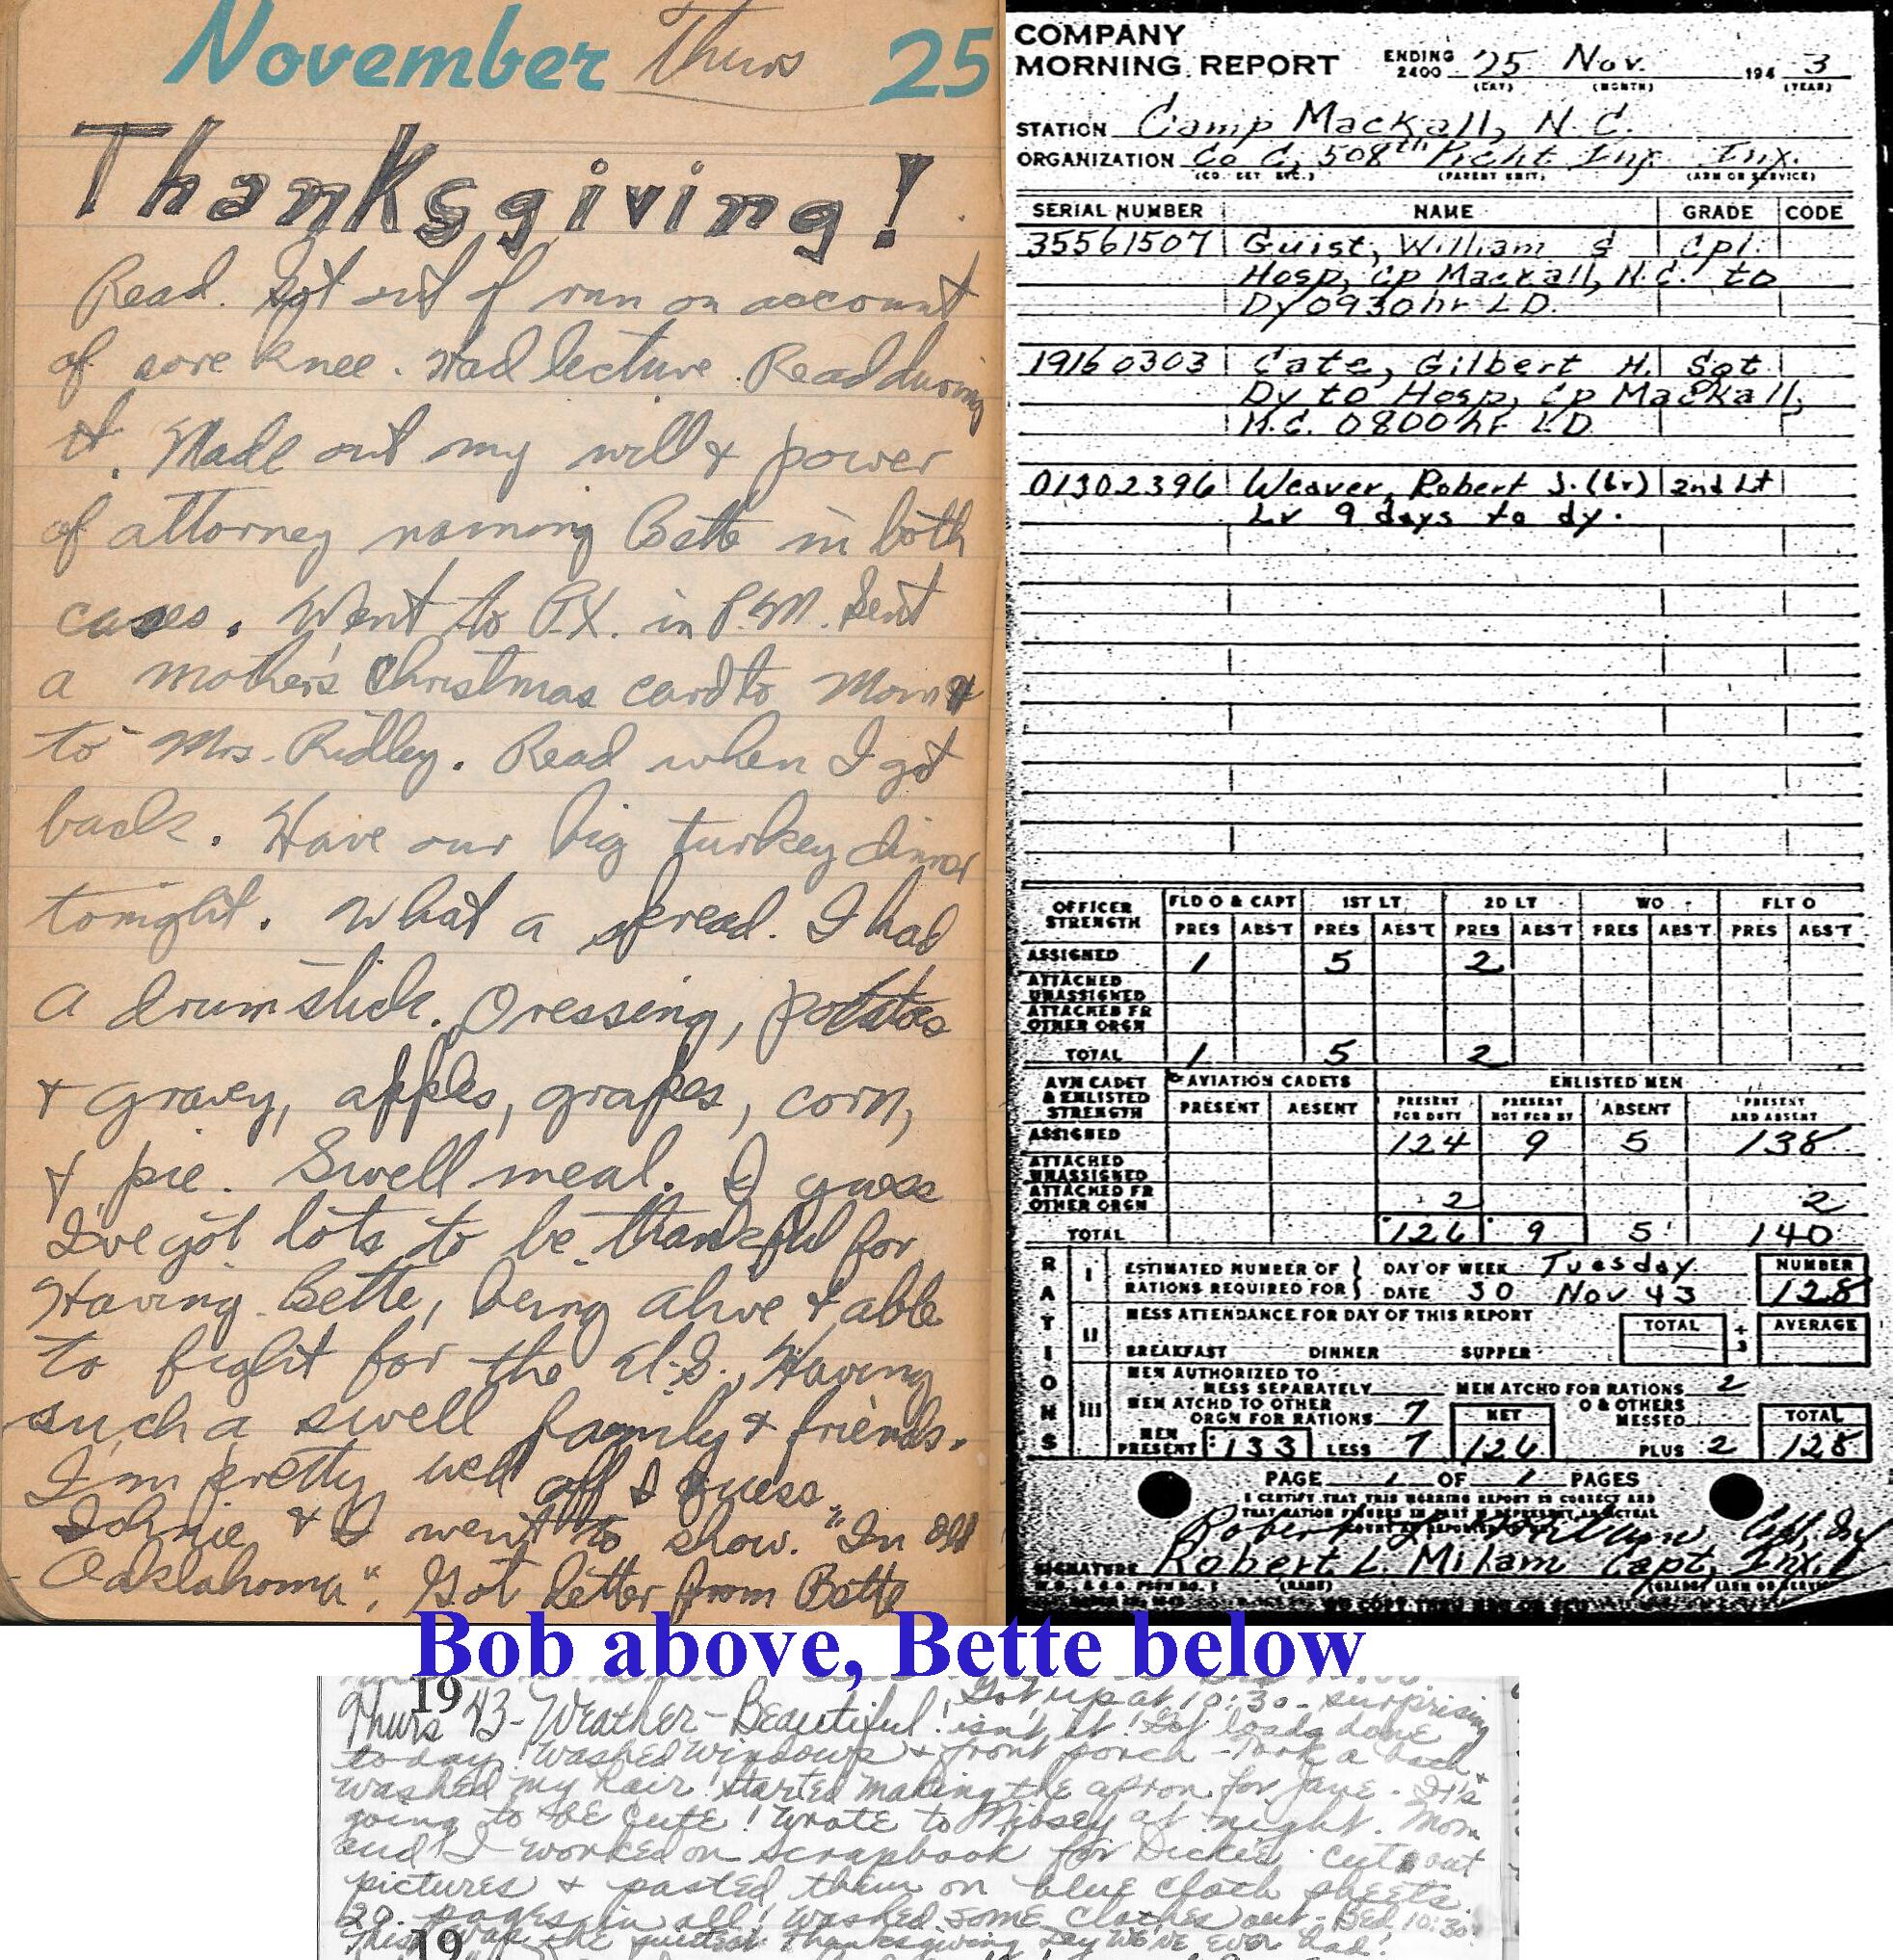 November Thurs 25
Thanksgiving!
Read. Got out of run on account
of sore knee. Had lecture. Read during
it. Made out my will & power
of attorney naming Bette in both
cases. Went to P.X. in P.M. Sent
a mother's Christmas card to Mom &
to Mrs. Ridley. Read when I got
back. Have our big turkey dinner
tonight. What a spread. I had
a drumstick. Dressing, potatoes
& gravey, apples, grapes, corn,
& pie. Swell meal. I guess
I've got lots to be thankful for
Having Bette, being alive & able
to fight for the U.S., Having
such a swell family & friends.
I'm pretty well off I guess.
Johnie & I went to show. "In Old
Oaklahoma". Got letter from Bette
COMPANY
MORNING REPORT ENDING 2400 25 Nov. 194 3
(DAY) (MONTH) (YEAR)
STATION Camp Mackall, N.C.
ORGANIZATION Co C, 508th Prcht Inf. Inf.
(CO. DET ETC.) (PARENT UNIT) (ARM OR SERVICE)
SERIAL NUMBER NAME GRADE CODE
35561507 Guist, William S Cpl.
Hosp, Cp Mackall, N.C. to
Dy 0930hr LD.
19160303 Cate, Gilbert H. Sgt
Dy to Hosp, Cp Mackall,
N.C. 0800hr LD
01302396 Weaver, Robert J. (Lr) 2nd Lt
Lv 9 days to dy.
OFFICER STRENGTH FLD O & CAPT 1ST LT 2D LT WO FLT O
PRES ABS'T PRES ABS'T PRES ABS'T PRES ABS'T PRES ABS'T
ASSIGNED 1 5 2
ATTACHED UNASSIGNED
ATTACHED FR OTHER ORGN
TOTAL 1 5 2
AVN CADET & ENLISTED STRENGTH AVIATION CADETS ENLISTED MEN
PRESENT ABSENT PRESENT FOR DUTY PRESENT NOT FOR DY ABSENT PRESENT AND ABSENT
ASSIGNED 124 9 5 138
ATTACHED UNASSIGNED
ATTACHED FR OTHER ORGN 2 2
TOTAL 126 9 5 140
RATIONS
I ESTIMATED NUMBER OF DAY OF WEEK Tuesday NUMBER
RATIONS REQUIRED FOR DATE 30 Nov 43 128
II MESS ATTENDANCE FOR DAY OF THIS REPORT TOTAL ÷ 3 AVERAGE
BREAKFAST DINNER SUPPER
III MEN AUTHORIZED TO
MESS SEPARATELY MEN ATCHD FOR RATIONS 2
MEN ATCHD TO OTHER
ORGN FOR RATIONS 7 NET O & OTHERS MESSED TOTAL
MEN PRESENT 133 LESS 7 126 PLUS 2 128
PAGE 1 OF 1 PAGES
I CERTIFY THAT THIS MORNING REPORT IS CORRECT AND
THAT RATION FIGURES IN PART III REPRESENT AN ACTUAL
SIGNATURE Robert L. Milam Capt, Inf.
Bob above, Bette below
19
Thurs 43 - Weather - Beautiful! Got up at 10:30 - surprising
isn't it! Got loads done
today! Washed windows & front porch - Took a bath &
washed my hair! Started making the apron for Jane. It's
going to be cute! Wrote to Mibsey at night. Mom
and I worked on scrapbook for Dickie. Cut out
pictures & pasted them on blue cloth sheets.
20 pages in all! Washed some clothes out - Bed 10:30!
This was the quietest Thanksgiving Day we've ever had!
19